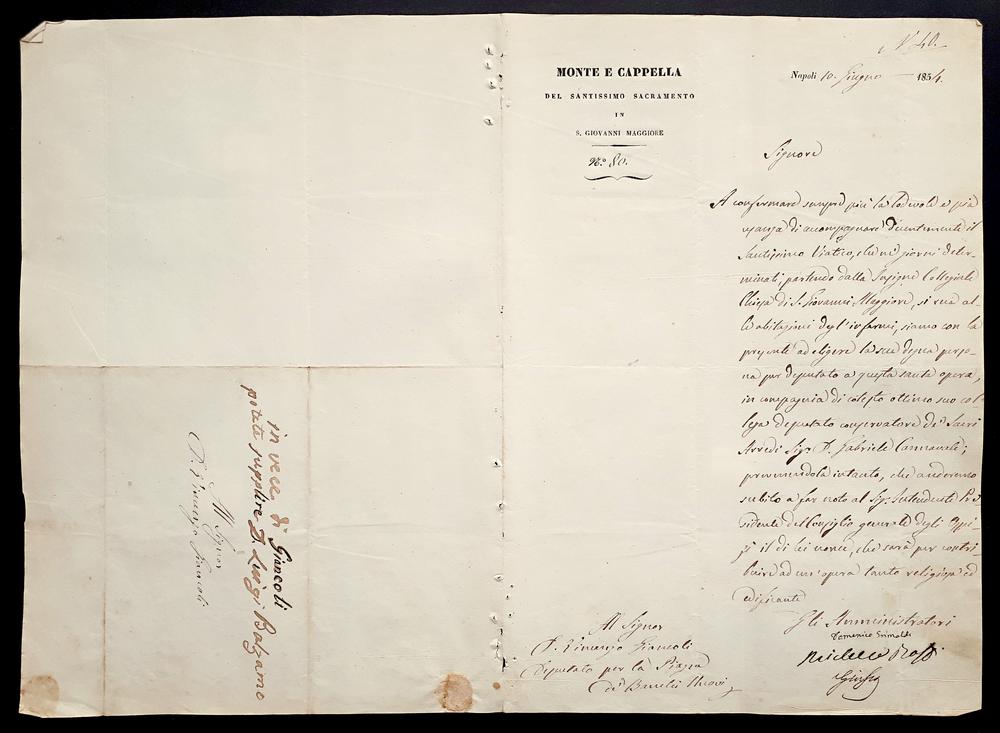 N. 40.
MONTE E CAPPELLA
DEL SANTISSIMO SACRAMENTO
IN
S. GIOVANNI MAGGIORE
N.º 80.
Napoli 10. Giugno 1854.
Signore
A confermare sempre più la lodevole e pia
usanza di accompagnare decentemente il
Santissimo Viatico, che ne' giorni deter-
minati, partendo dalla Insigne Collegiata
Chiesa di S. Giovanni Maggiore, si reca al-
le abitazioni degl'infermi, siamo con la
presente ad eligere la sua degna perso-
na per deputato a questa santa opera,
in compagnia di cotesto ottimo suo col-
lega deputato conservatore de' Sacri
Arredi Sig. D. Gabriele Cannavale;
prevenendola intanto, che anderemo
subito a far noto al Sig. Intendente Pre-
sidente del Consiglio generale degli Ospi-
zi il di lei nome, che sarà per contri-
buire ad un'opera tanto religiosa ed
edificante
Gli Amministratori
Domenico Grimaldi
Michele Rossi
Al Signor
D. Vincenzo Giancoli
Deputato per la Piazza
de' Banchi Nuovi
in vece di Giancoli
potete supplire D. Luigi Balzamo
Al Signor
D. Vincenzo Giancoli